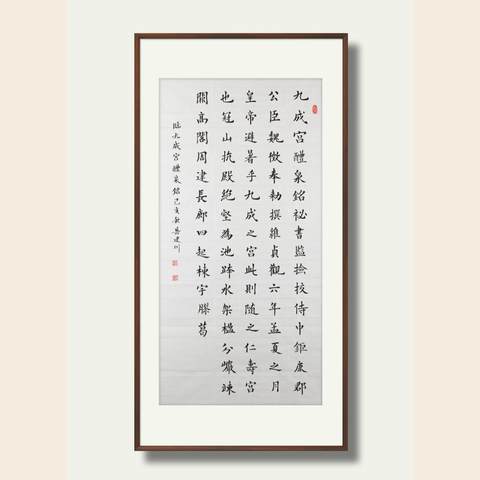 九成宮醴泉銘祕書監撿挍侍中鉅鹿郡
公臣魏徵奉勑撰維貞觀六年孟夏之月
皇帝避暑乎九成之宮此則随之仁壽宮
也冠山抗殿絶壑為池跨水架楹分巖竦
闕高閣周建長廊四起棟宇膠葛
臨九成宮醴泉銘己亥秋吳建川